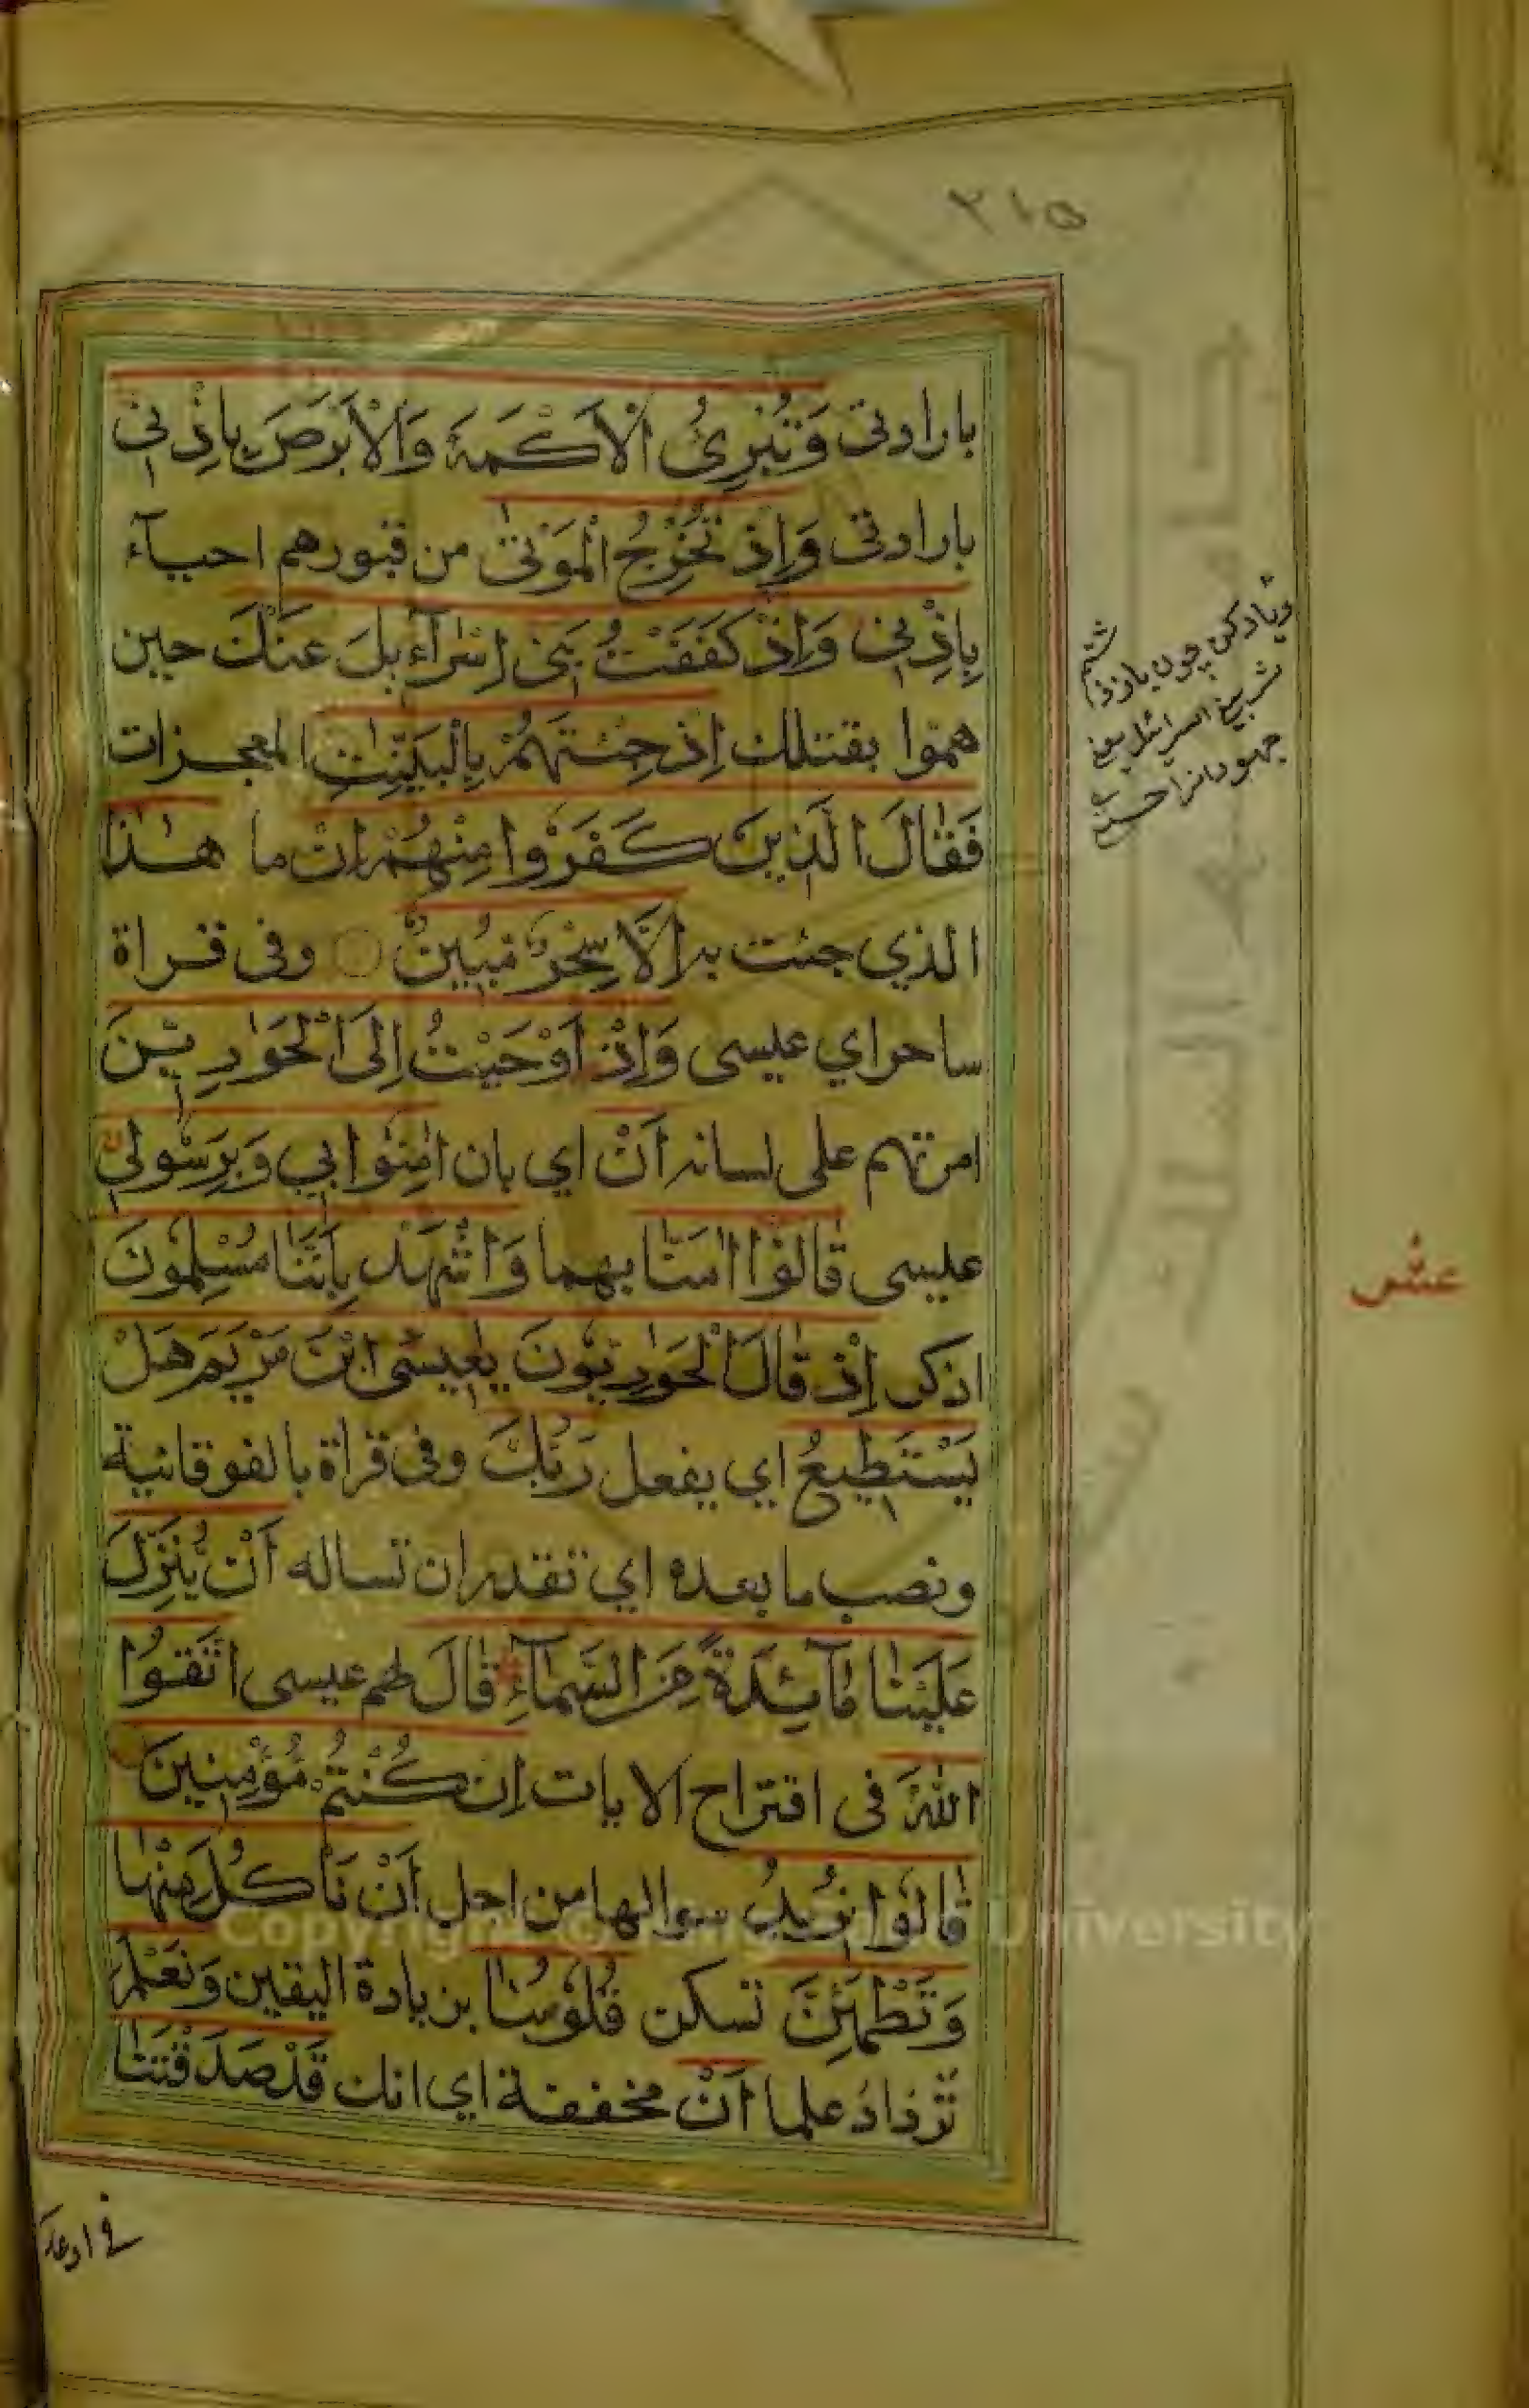 ٢١٥
بارادتى وَتُبْرِئُ الْاَكْمَهَ وَالْاَبْرَصَ بِاِذْنِى
بارادتى وَاِذْ تُخْرِجُ الْمَوْتٰى من قبورهم احيآء
بِاِذْنِى وَاِذْ كَفَفْتُ بَنِى اِسْرَآءِيلَ عَنْكَ حين
همّوا بقتلك اِذْ جِئْتَهُمْ بِالْبَيِّنٰتِ المعجزات
فَقَالَ الَّذِينَ كَفَرُوْا مِنْهُمْ اِنْ ما هٰذَا
الذي جئت به اِلَّا سِحْرٌ مُّبِيْنٌ وفى قراة
ساحر اي عيسى وَاِذْ اَوْحَيْتُ اِلَى الْحَوَارِيّٖنَ
امرتهم على لسانه اَنْ اي بان اٰمِنُوْا بِي وَبِرَسُوْلِي
عيسى قَالُوْا اٰمَنَّا بهما وَاشْهَدْ بِاَنَّنَا مُسْلِمُوْنَ
اذكر اِذْ قَالَ الْحَوَارِيُّوْنَ يٰعِيْسَى ابْنَ مَرْيَمَ هَلْ
يَسْتَطِيْعُ اي يفعل رَبُّكَ وفى قراة بالفوقانية
ونصب ما بعده اي تقدر ان تساله اَنْ يُّنَزِّلَ
عَلَيْنَا مَآئِدَةً مِّنَ السَّمَآءِ قَالَ لهم عيسى اتَّقُوا
اللّٰهَ فى اقتراح الايات اِنْ كُنْتُمْ مُّؤْمِنِيْنَ
قَالُوْا نُرِيْدُ سوالها من اجل اَنْ نَّأْكُلَ مِنْهَا
وَتَطْمَئِنَّ تسكن قُلُوْبُنَا بزيادة اليقين وَنَعْلَمَ
نزداد علما اَنْ مخففة اي انك قَدْ صَدَقْتَنَا
وياد كن چون باز
جهودانرا
عشر
فى ادعا
Copyright © King Saud University